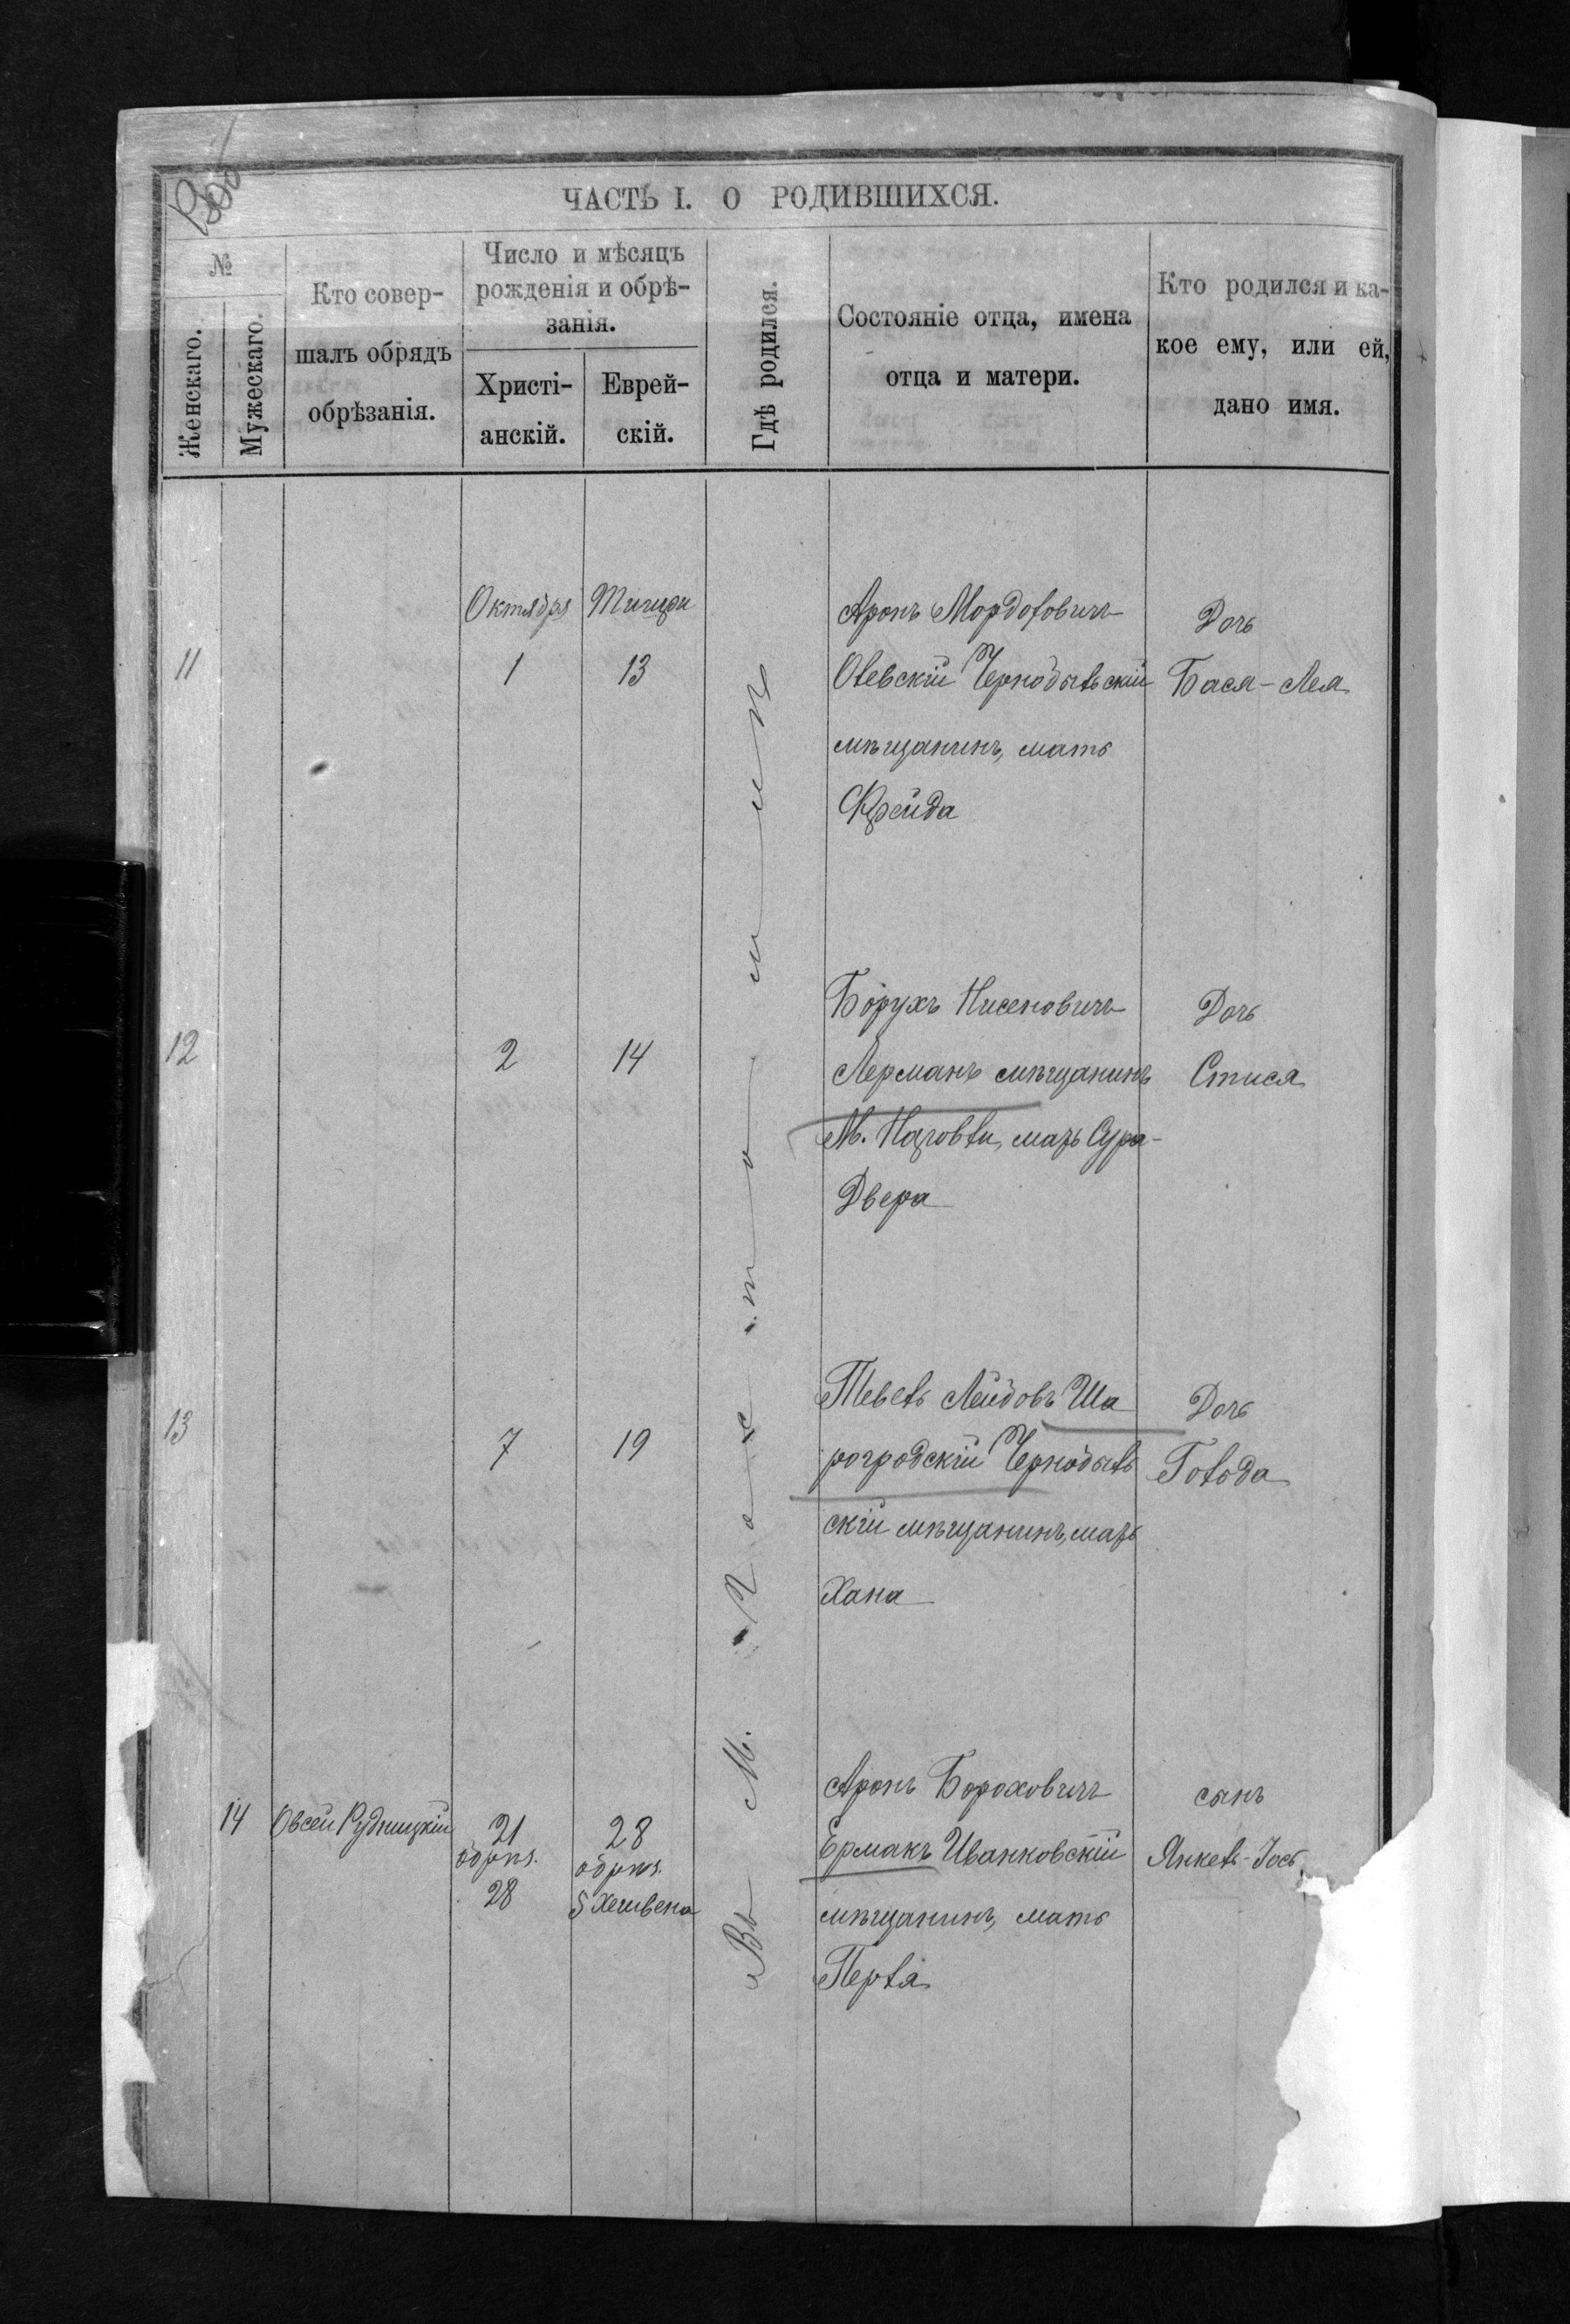 ЧАСТЬ I. О РОДИВШИХСЯ.
№
Женскаго.
Мужескаго.
Кто совер-
шалъ обрядъ
обрѣзанія.
Число и мѣсяцъ
рожденія и обрѣ-
занія.
Христі-
анскій.
Еврей-
скій.
Гдѣ родился.
Состояніе отца, имена
отца и матери.
Кто родился и ка-
кое ему, или ей,
дано имя.
Въ М.
Октября Тишри
11 1 13
Аронъ Мордковичъ
Олевскій Чернобыльскій
мѣщанинъ, мать
Фрейда
Дочь
Бася-Лея
12 2 14
Борухъ Нисеновичъ
Лерманъ мѣщанинъ
М. , мать Сура-
Двера
Дочь
Стися
13 7 19
Тевель Лейбовъ Ша
рогродскій Чернобыль
скій мѣщанинъ, мать
Хана
Дочь
Гольда
14 Овсей Рудницкій
21 28
обрѣз. обрѣз.
28 5 Хешвена
Аронъ Бороховичъ
Ермакъ Иванковскій
мѣщанинъ, мать
Перля
сынъ
Янкель-Іось